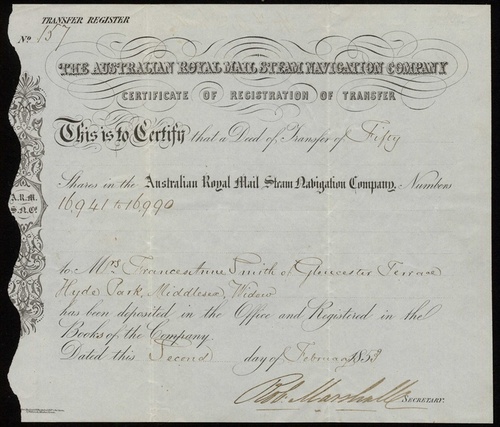 TRANSFER REGISTER
No. 157
THE AUSTRALIAN ROYAL MAIL STEAM NAVIGATION COMPANY
CERTIFICATE OF REGISTRATION OF TRANSFER
This is to Certify that a Deed of Transfer of Fifty
Shares in the Australian Royal Mail Steam Navigation Company, Numbers
16941 to 16990
A.R.M.
S.N.Co.
to Mrs. Frances Anne Smith of Gloucester Terrace
Hyde Park, Middlesex, Widow
has been deposited in the Office and Registered in the
Books of the Company.
Dated this Second day of February 1853
Rob. Marshall SECRETARY.